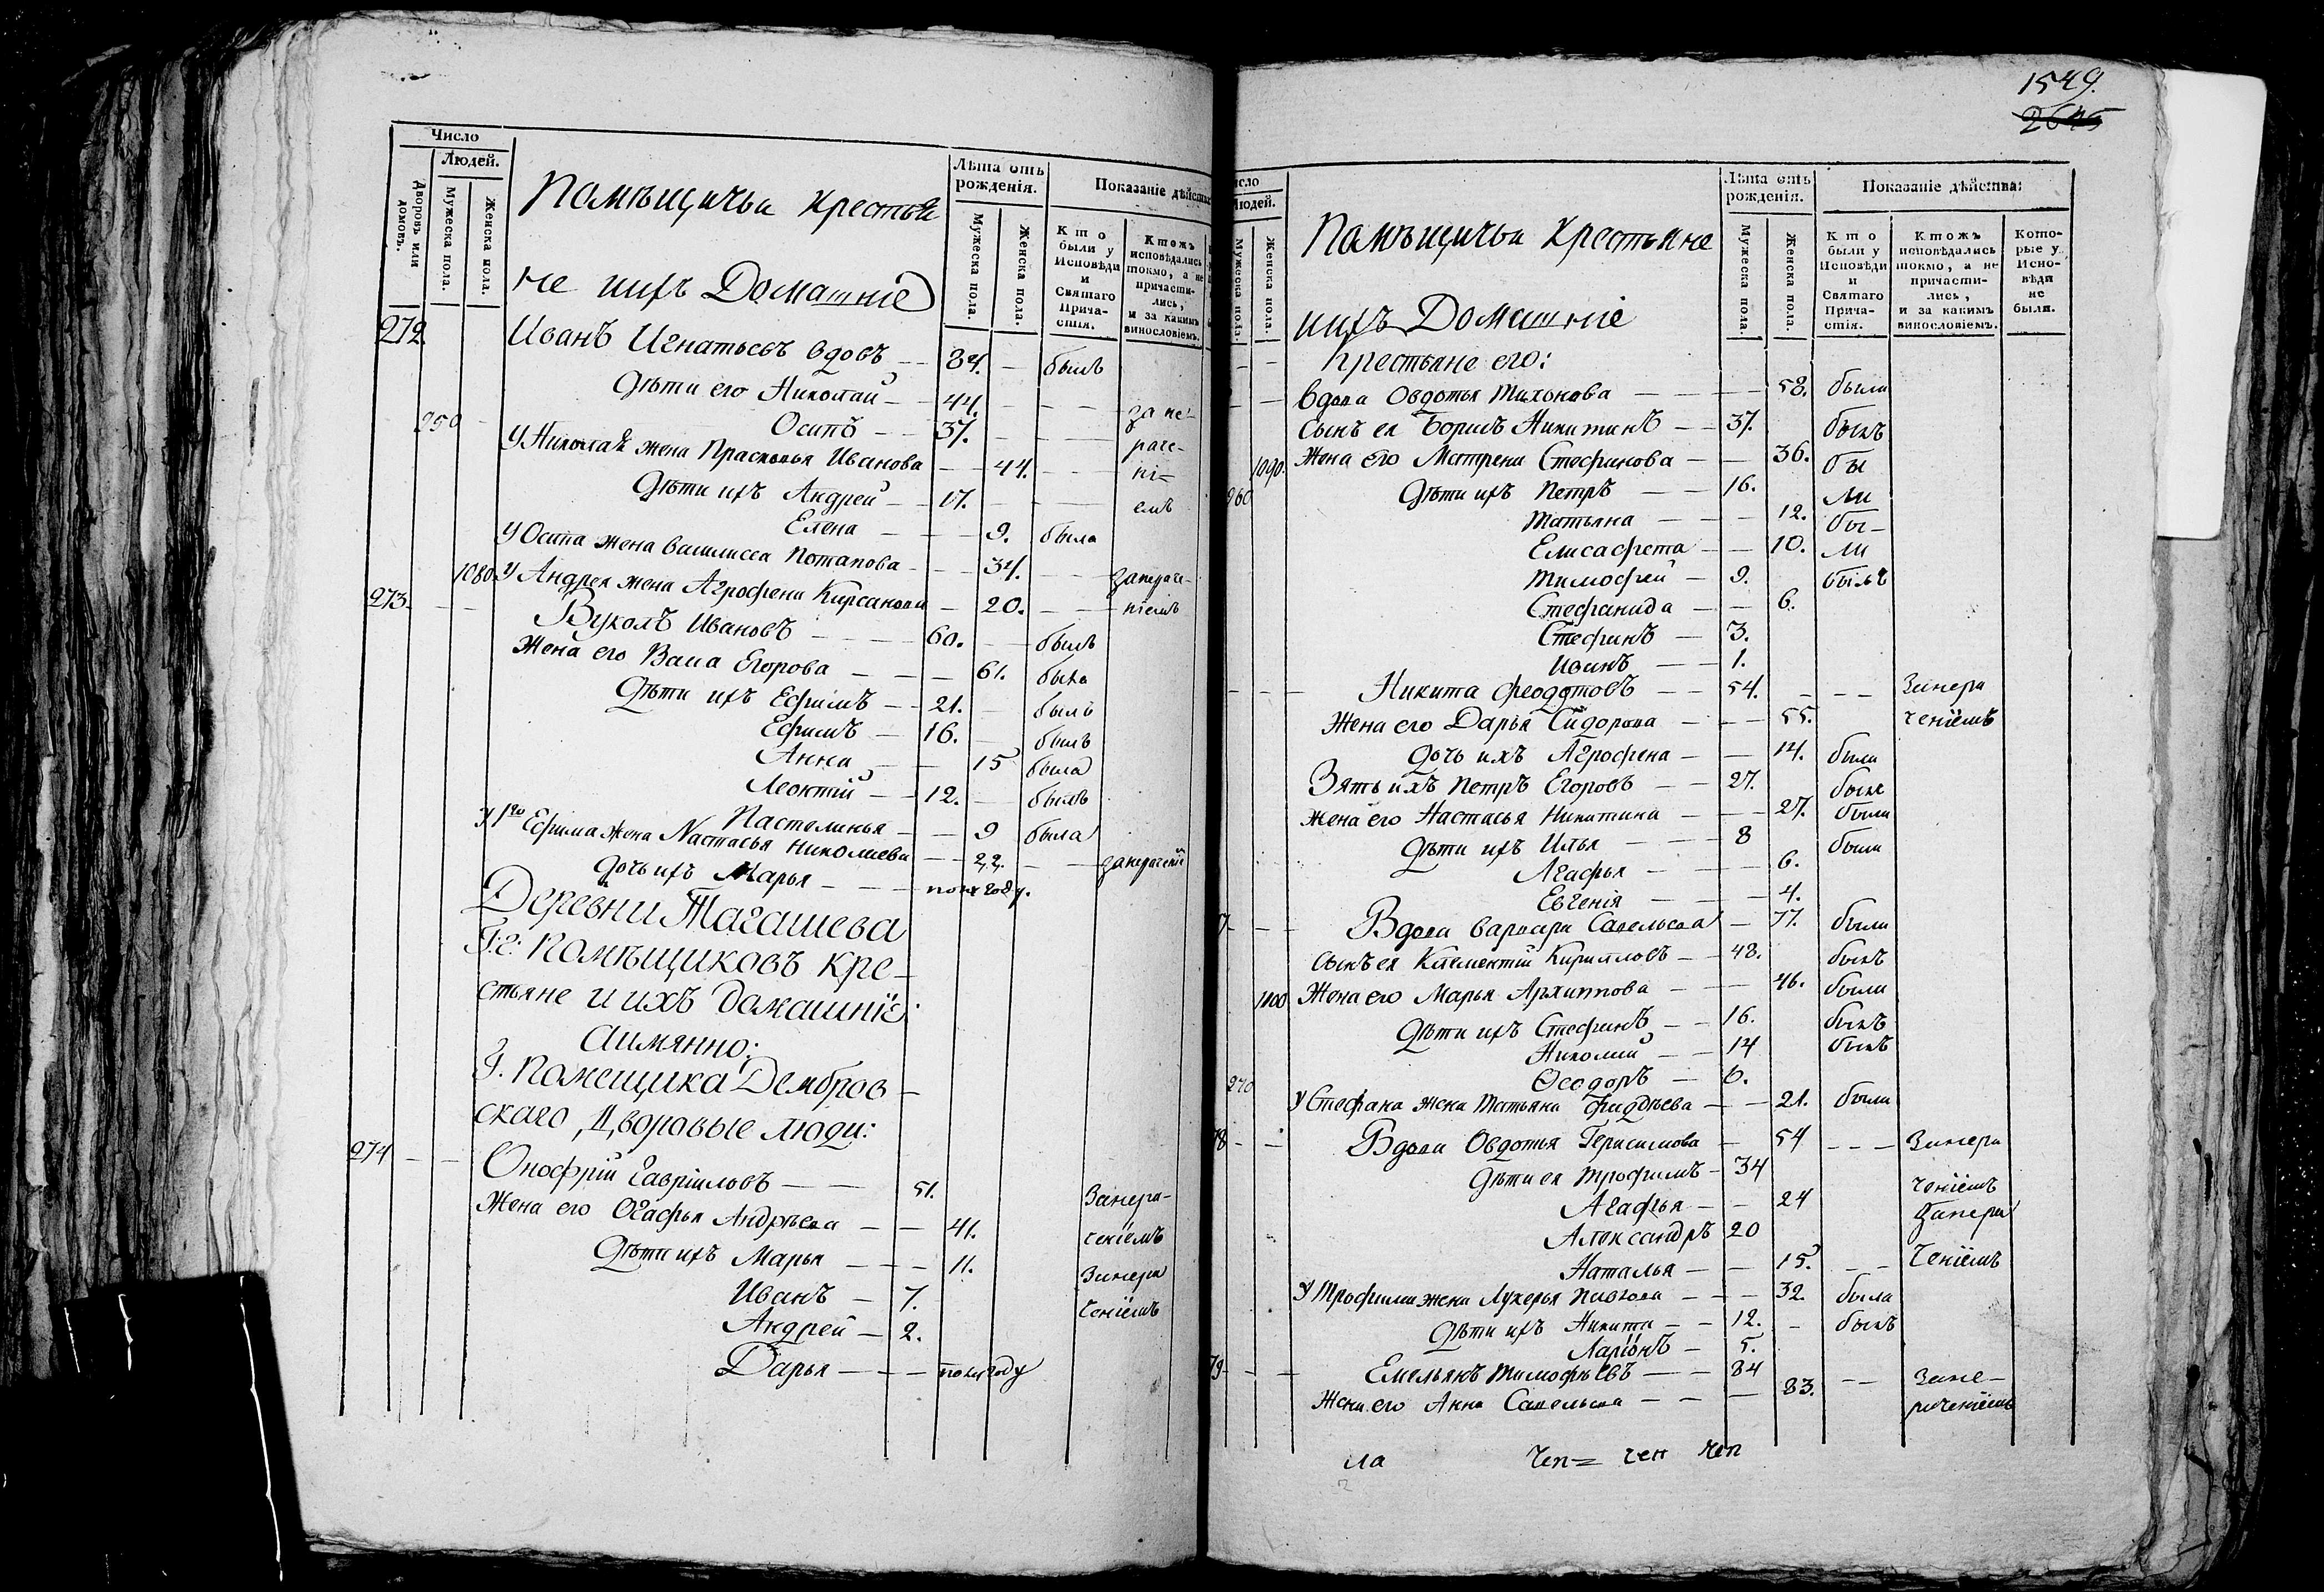 Число
Людей.
Дворовъ или домовъ.
Мужеска пола.
Женска пола.
Помѣщичьи крестья
не ихъ Домашніе
Лѣта отъ рожденія.
Мужеска пола.
Женска пола.
Показаніе дѣйства
Кто были у Исповѣди и Святаго Причастія.
Ктожъ исповѣдались токмо, а не причастились, и за какимъ винословіемъ.
272. Иванъ Игнатьевъ вдовъ — 84. — былъ
Дѣти его Николай — 44. — за не-
250 Осипъ — 37. — раче-
У Николая жена Прасковья Иванова — 44. — ні-
Дѣти ихъ Андрей — 17. — емъ
Елена — 9. была
У Осипа жена Василисса Потапова — 34. — занераче-
1080 У Андрея жена Агрофена Кирсанова — 20. — ніемъ
273. Вуколъ Ивановъ — 60. — былъ
Жена его Васа Егорова — 61. была
Дѣти ихъ Ефимъ — 21. — былъ
Ефимъ — 16. — былъ
Анна — 15 была
Леонтій — 12. — былъ
Пастелинья — 9 была
У 1го Ефима жена Настасья Николаева — 22. — занераченіе
дочь ихъ Марья — полугоду.
Деревни Тагашева
Г: г: помѣщиковъ кре-
стьяне и ихъ домашніе
аимянно:
Г. Помещика Дембров-
скаго, Дворовые люди:
274 — — Онофрій Гавріиловъ — 51. Занера-
Жена его Огафья Андрѣева — 41. ченіемъ
Дѣти ихъ Марья — 11. Занера
Иванъ — 7. ченіемъ
Андрей — 2.
Дарья — полугоду
1549.
2645
исло
Людей.
Мужеска пола.
Женска пола.
Помѣщичьи Крестьяне
ихъ Домашніе
Лѣта отъ рожденія.
Мужеска пола.
Женска пола.
Показаніе дѣйства:
Кто были у Исповѣди и Святаго Причастія.
Ктожъ исповѣдались токмо, а не причастились, и за какимъ винословіемъ.
Которые у Исповѣди не были.
крестьяне его:
— — вдова Овдотья — 58. была
Сынъ ея Борисъ Никитинъ — 37. былъ
1090 Жена его Матрена Стефанова — 36. бы
260 Дѣти ихъ Петръ — 16. ли
Татьяна — 12. бы-
Елисафета — 10. ли
Тимофей — 9. былъ
Стефанида — 6.
Стефанъ — 3.
Иванъ — 1.
— — — Никита Феодотовъ — 54. — — — Занера
Жена его Дарья Сидорова — 55. ченіемъ
дочь ихъ Агрофена — 14. была
Зять ихъ Петръ Егоровъ — 27. былъ
Жена его Настасья Никитина — 27. была
Дѣти ихъ Илья — 8 были
Агафья — 6.
Евгенія — 4.
7 — — Вдова Варвара Савельева — 77. была
Сынъ ея Климентій Кириловъ — 48. былъ
1100 Жена его Марья Архипова — 46. была
Дѣти ихъ Стефанъ — 16. былъ
Николай — 14 былъ
270 Ѳеодоръ — 6.
У Стефана жена Татьяна — 21. была
78 — — Вдова Овдотья Герасимова — 54 — — — Занера
Дѣти ея Трофимъ — 34 ченіемъ
Агафья — 24 Занера
Александръ 20
Наталья — 15. — — Ченіемъ
У Трофима жена Лукерья Павлова — 32. была
Дѣти ихъ Никита — 12. — былъ
Ларіонъ — 5.
79 — — Емельянъ Тимофѣевъ — 84 — — Зане-
Жена его Анна Савельева — 83. раченіемъ
ла Чен= чен чен